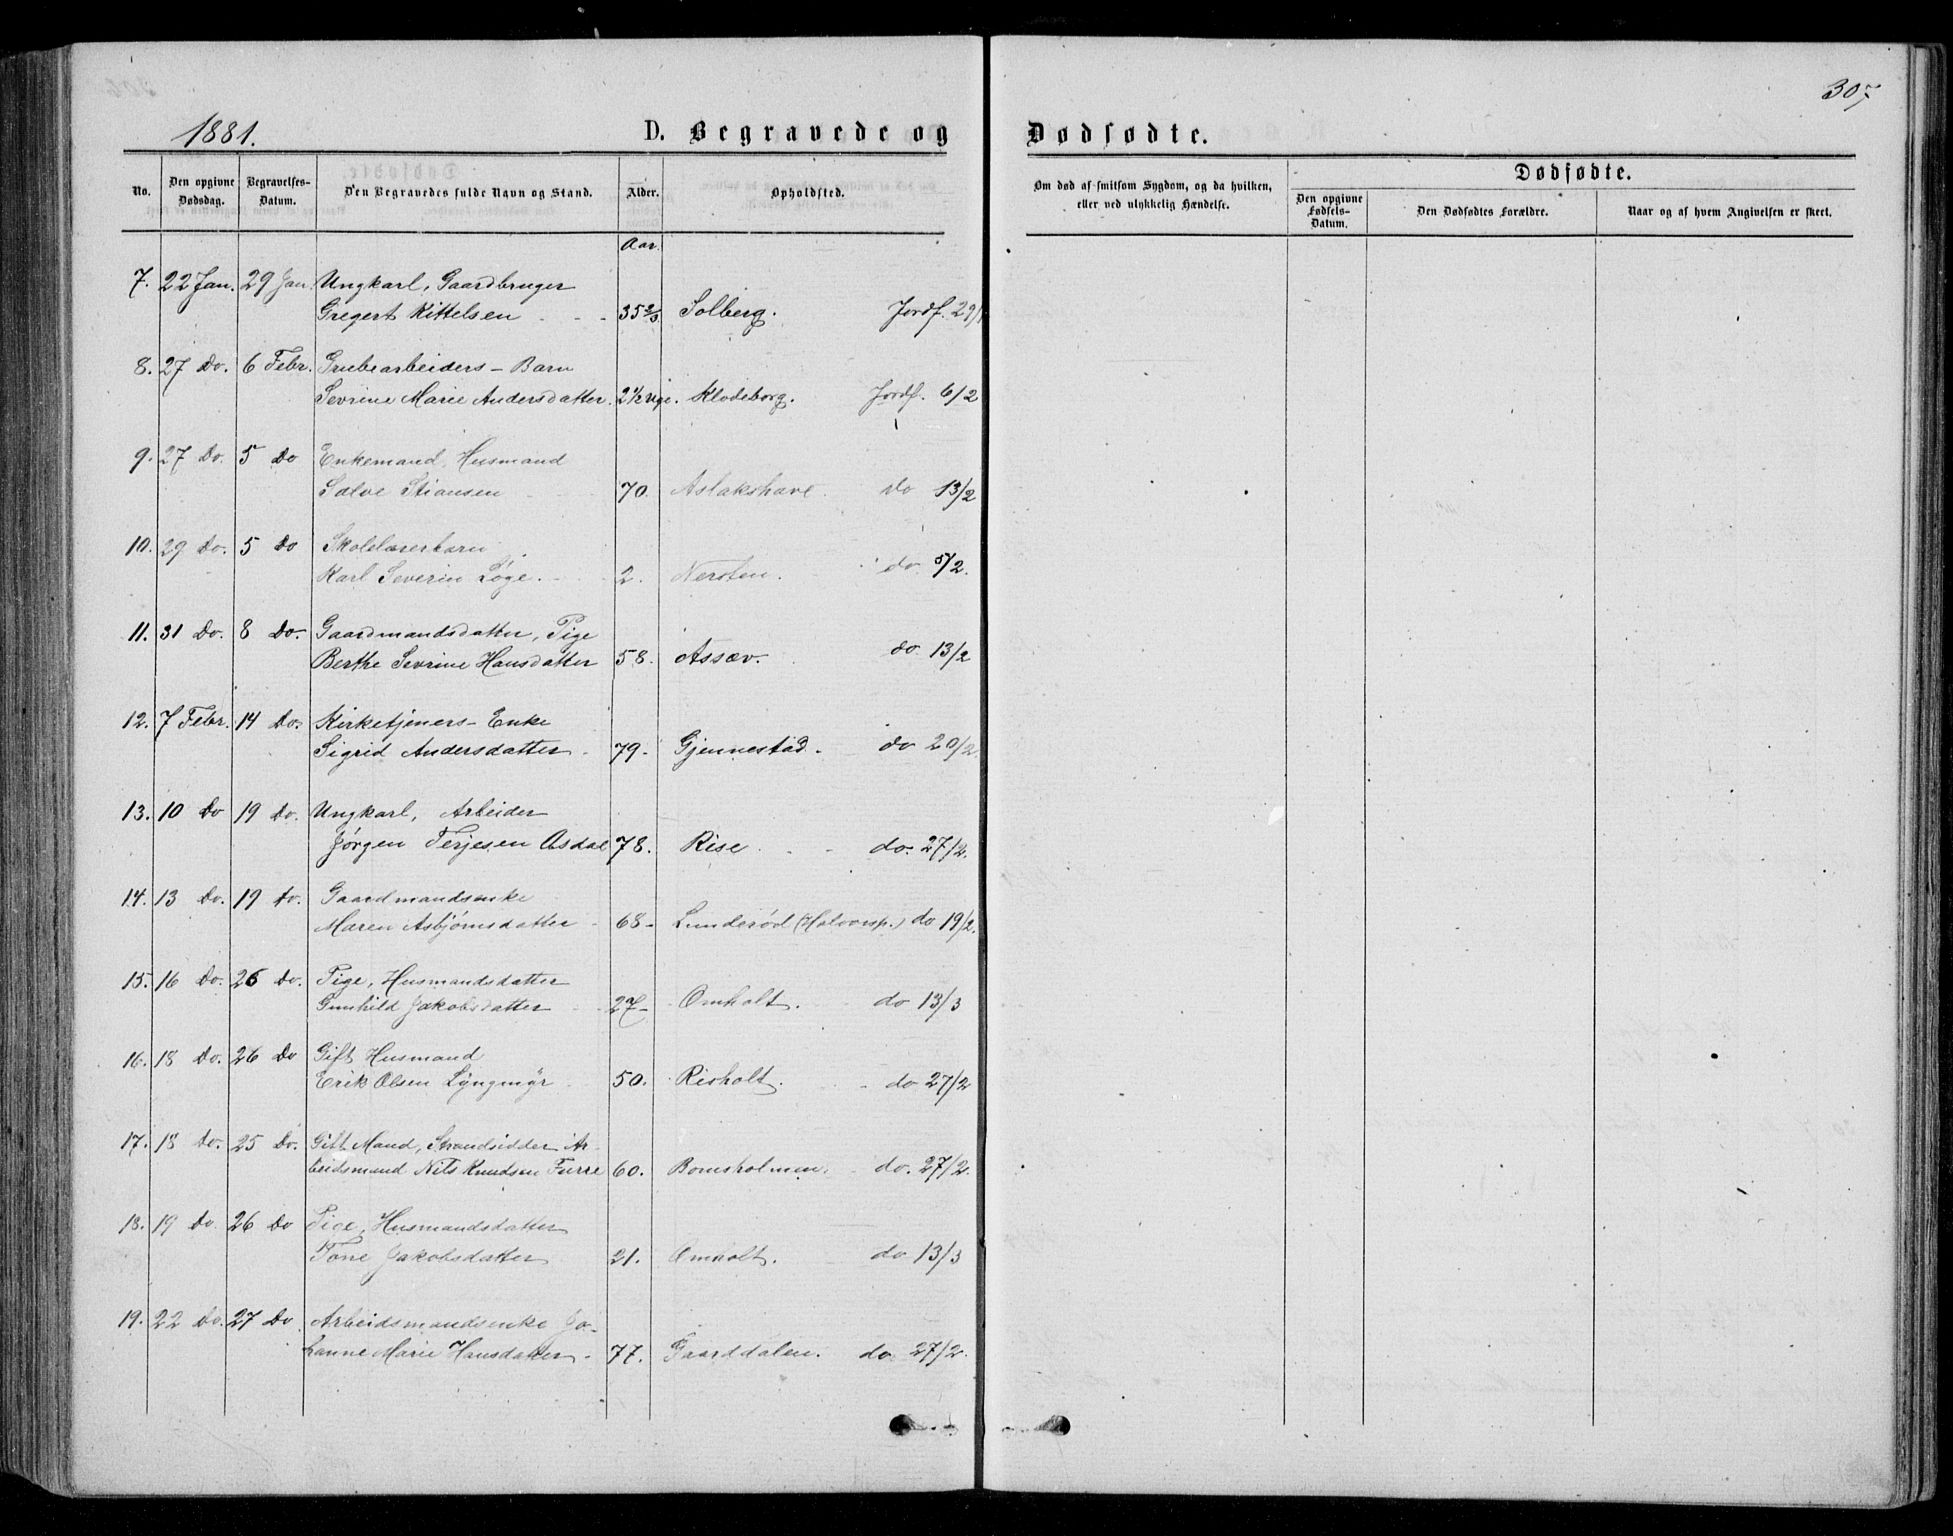 307
1881. D. Begravede og Dødfødte.
No. Den opgivne Dødsdag. Begravelses-Datum. Den Begravedes fulde Navn og Stand. Alder. Opholdsted.
Om død af smitsom Sygdom, og da hvilken, eller ved ulykkelig Hændelse. Dødfødte.
Den opgivne Fødsels-Datum. Den Dødfødtes Forældre. Naar og af hvem Angivelsen er skeet.
Aar.
7. 22 Jan. 29 Jan. Ungkarl, Gaardbruger
Gregert Kittelsen 35 2/3 Solberg. Jordf. 29/1
8. 27 Do. 6 Febr. Grubearbeiders-Barn
Sevrine Marie Andersdatter. 2 1/2 Uge. Klodeborg. Jordf. 6/2
9. 27 Do. 5 Do Enkemand, Husmand
Salve Stiansen 70. Aslakshave. do 13/2
10. 29 Do. 5 Do Skolelærerbarn
Karl Severin Løge. 2. Nersten. do. 5/2.
11. 31 Do. 8 Do. Gaardmandsdatter, Pige
Berthe Sevrine Hansdatter 58. Assæv. do 13/2
12. 7 Febr. 14 Do. Kirketjeners-Enke
Sigrid Andersdatter 79. Gjennestad. do 20/2.
13. 10 Do 19 Do. Ungkarl, Arbeider
Jørgen Terjesen Asdal 78. Rise do. 27/2.
14. 13 Do. 19 do. Gaardmandsenke
Maren Asbjørnsdatter 68 Lunderød (Halvorsp.) do 19/2.
15. 16 Do. 26 Do. Pige, Husmandsdatter
Gunhild Jakobsdatter 27 Omholt. do 13/3
16. 18 Do. 26 Do Gift Husmand
Erik Olsen Lyngmyr 50. Risholt. do 27/2
17. 18 Do. 25 Do. Gift Mand, Strandsidder Ar-
beidsmand Nils Knudsen Furre 60. Bomsholmen. do. 27/2.
18. 19 Do 26 Do Pige, Husmandsdatter
Tone Jakobsdatter 21. Omholt. do 13/3
19. 22 Do. 27 Do Arbeidsmandsenke Jo-
hanne Marie Hansdatter. 77. Gaarddalen. do. 27/2.